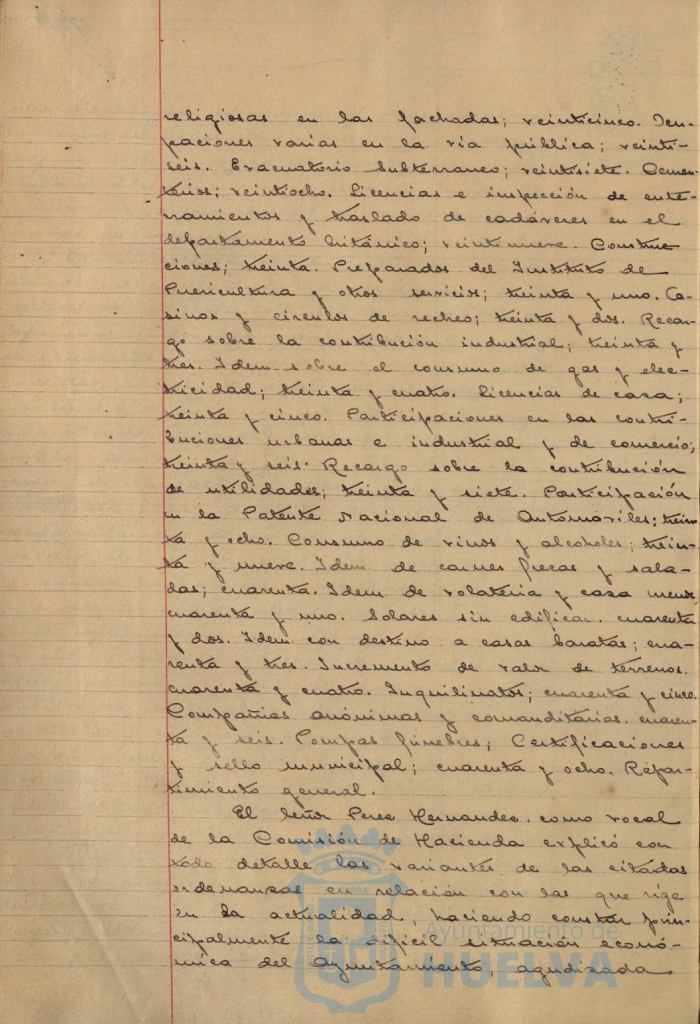 religiosas en las fachadas; veinticinco. Ocu-
paciones varias en la vía pública; veinti-
seis. Evacuatorio subterraneo; veintisiete. Cemen-
terios; veintiocho. Licencias e inspección de ente-
rramientos y traslado de cadáveres en el
departamento británico; veintinueve. Construc-
ciones; treinta. Preparados del Instituto de
Puericultura y otros servicios; treinta y uno. Ca-
sinos y circulos de recreo; treinta y dos. Recar-
go sobre la contribución industrial; treinta y
tres. Idem sobre el consumo de gas y elec-
tricidad; treinta y cuatro. Licencias de caza;
treinta y cinco. Participaciones en las contri-
buciones urbanas e industrial y de comercio;
treinta y seis. Recargo sobre la contribución
de utilidades; treinta y siete. Participación
en la Patente Nacional de Automóviles; trein-
ta y ocho. Consumo de vinos y alcoholes; trein-
ta y nueve. Idem de carnes frescas y sala-
das; cuarenta. Idem de volateria y caza menor,
cuarenta y uno. Solares sin edificar. cuarenta
y dos. Idem con destino a casas baratas; cua-
renta y tres. Incremento de valor de terrenos.
cuarenta y cuatro. Inquilinatos; cuarenta y cinco.
Compañias anónimas y comanditarias. cuaren-
ta y seis. Pompas fúnebres; Certificaciones
y sello municipal; cuarenta y ocho. Repar-
timiento general.
El señor Perez Hernandez. como vocal
de la Comisión de Hacienda explicó con
todo detalle las variantes de las citadas
ordenanzas en relación con las que rige
en la actualidad, haciendo constar prin-
cipalmente la dificil situación econó-
mica del Ayuntamiento, agudizada
Ayuntamiento de
HUELVA